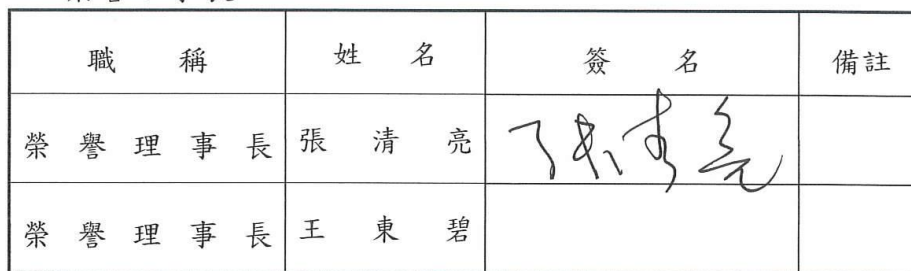 職稱 姓名 簽名 備註
榮譽理事長 張清亮 張清亮
榮譽理事長 王東碧